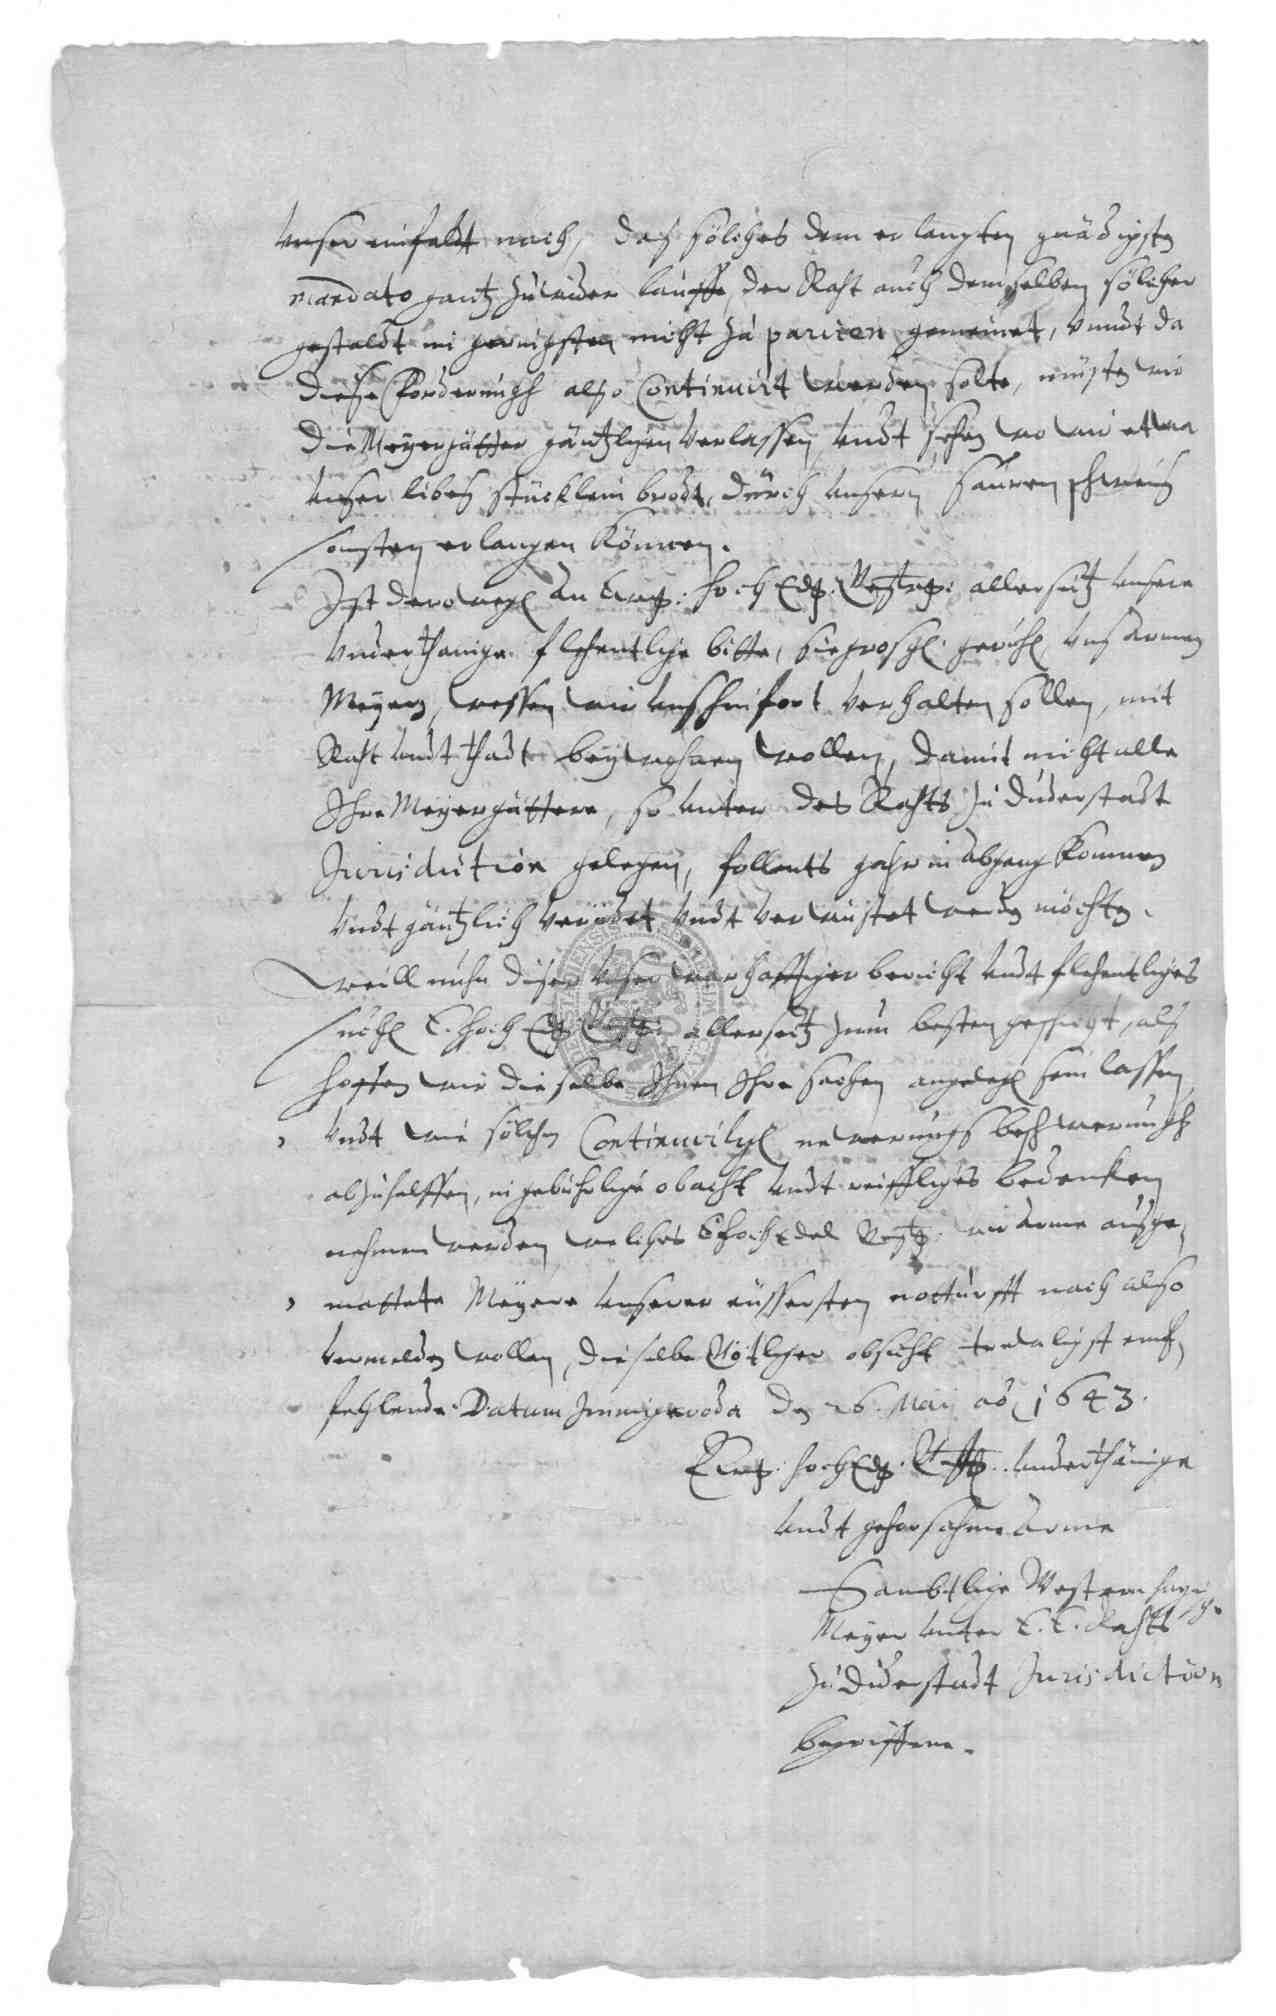 Unser einfaldt nach, daß sölches dem erlangten gnädigsten
mandato gantz zuwider lauffe, der Raht auch demselben sölcher
gestaldt im geringsten nicht zu pariren gemeinet, Unndt da
diese Forderungh also Continuirt werden solte, müsten wir
die Meyergütter gäntzlichen verlassen, undt sehen wo wir etwa
unser liebes stücklein brodt, durch unsern sauren schweiß
sonsten erlangen können.
Ist derowegen an Ewg: hoch Edg. Vestg: allerseitz unsere
Underthanige flehentliche bitte, sie großg. geruhen, uns armen
Meyern, wessen wir uns hinfort verhalten sollen, mit
Raht undt thadt beywohnen wollen, damit nicht alle
Ihre Meyergüttere, so unter des Rahts zu Duderstadt
Jurisdiction gelegen, follents gahr in abgang kommen
Undt gäntzlich verödet undt verwüstet werden möchten.
Weill nuhn dieser unser warhafftiger bericht undt flehentliches
suchen E. Hoch Edg. Vestg: allerseitz zum besten gereicht, als
hoffen wir dieselbe Ihnen Ihre sachen angelegen sein lassen
Undt wie sölchen Continuirlichen newerungs beschwerungh
abzuhelffen, in gebührliche obacht undt reiffliches bedenken
nehmen werden, welches E hoch Edel Vestg. wir arme ausge,,
mattete Meyere unserer eüssersten notturfft nach also
vermelden wollen, dieselbe Götlicher obsicht trewligst emf,,
fehlende. Datum Immigeroda den 26. Maij ao 1643.
Ewg. hoch Edg. Vestg. underthänige
undt gehorsahme arme
Sambtliche Westernhagische
Meyer unter E. E. Rahts
zu Duderstadt Jurisdiction
begriffene.